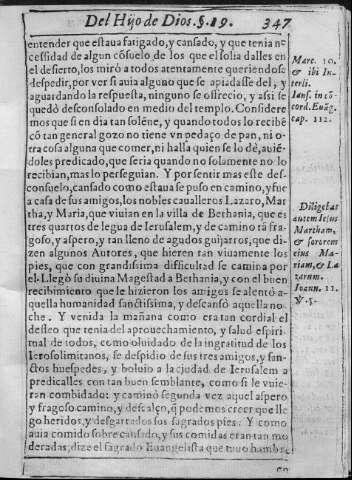 Del Hijo de Dios. §. 19. 347
entender que estaua fatigado, y cansado, y que tenia ne
cessidad de algun cõsuelo, de los que el solia dalles en
el desierto, los mirò a todos atentamente queriendose
despedir, por ver si auia alguno que se apiadasse del, y
aguardando la respuesta, ninguno se ofrecio, y assi se
quedò desconsolado en medio del templo. Considere
mos que si en dia tan solẽne, y quando todos lo recibẽ
cõ tan general gozo no tiene vn pedaço de pan, ni o-
tra cosa alguna que comer, ni halla quien se lo dè, auiẽ-
doles predicado, que seria quando no solamente no lo
recibian, mas lo perseguian. Y por sentir mas este des-
consuelo, cansado como estaua se puso en camino, y fue
a casa de sus amigos, los nobles caualleros Lazaro, Mar
tha, y Maria, que viuian en la villa de Bethania, que es
tres quartos de legua de Ierusalem, y de camino tã fra-
goso, y aspero, y tan lleno de agudos guijarros, que di-
zen algunos Autores, que hieren tan viuamente los
pies, que con grandissima difficultad se camina por
el. Llegò su diuina Magestad a Bethania, y con el buen
recibimiento que le hizieron los amigos se alentò a-
quella humanidad sanctissima, y descansò aquella no-
che. Y venida la mañana como era tan cordial el
desseo que tenia del aprouechamiento, y salud espiri-
tual de todos, como oluidado de la ingratitud de los
Ierosolimitanos, se despidio de sus tres amigos, y san-
ctos huespedes, y boluio a la ciudad de Ierusalem a
predicalles con tan buen semblante, como si le vuie-
ran combidado: y caminò segunda vez aquel aspero
y fragoso camino, y descalço, q̃ podemos creer que lle-
go heridos, y desgarrados sus sagrados pies. Y como
auia comido sobre cansado, y sus comidas eran tan mo
deradas, dize el sagrado Euangelista que tuuo hambre
Marc. 10.
& ibi In-
terli.
Ians. in cõ-
cord. Euãg.
cap. 112.
Diligebat
autem Iesus
Martham,
& sororem
eius Ma-
riam, & La
zarum.
Ioann. 11.
℣. 5.